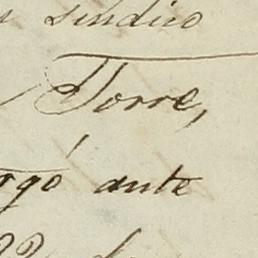 síndico
Torre,
rgó ante